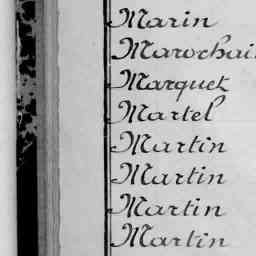 Marin
Marochai
Marquet
Martel
Martin
Martin
Martin
Martin